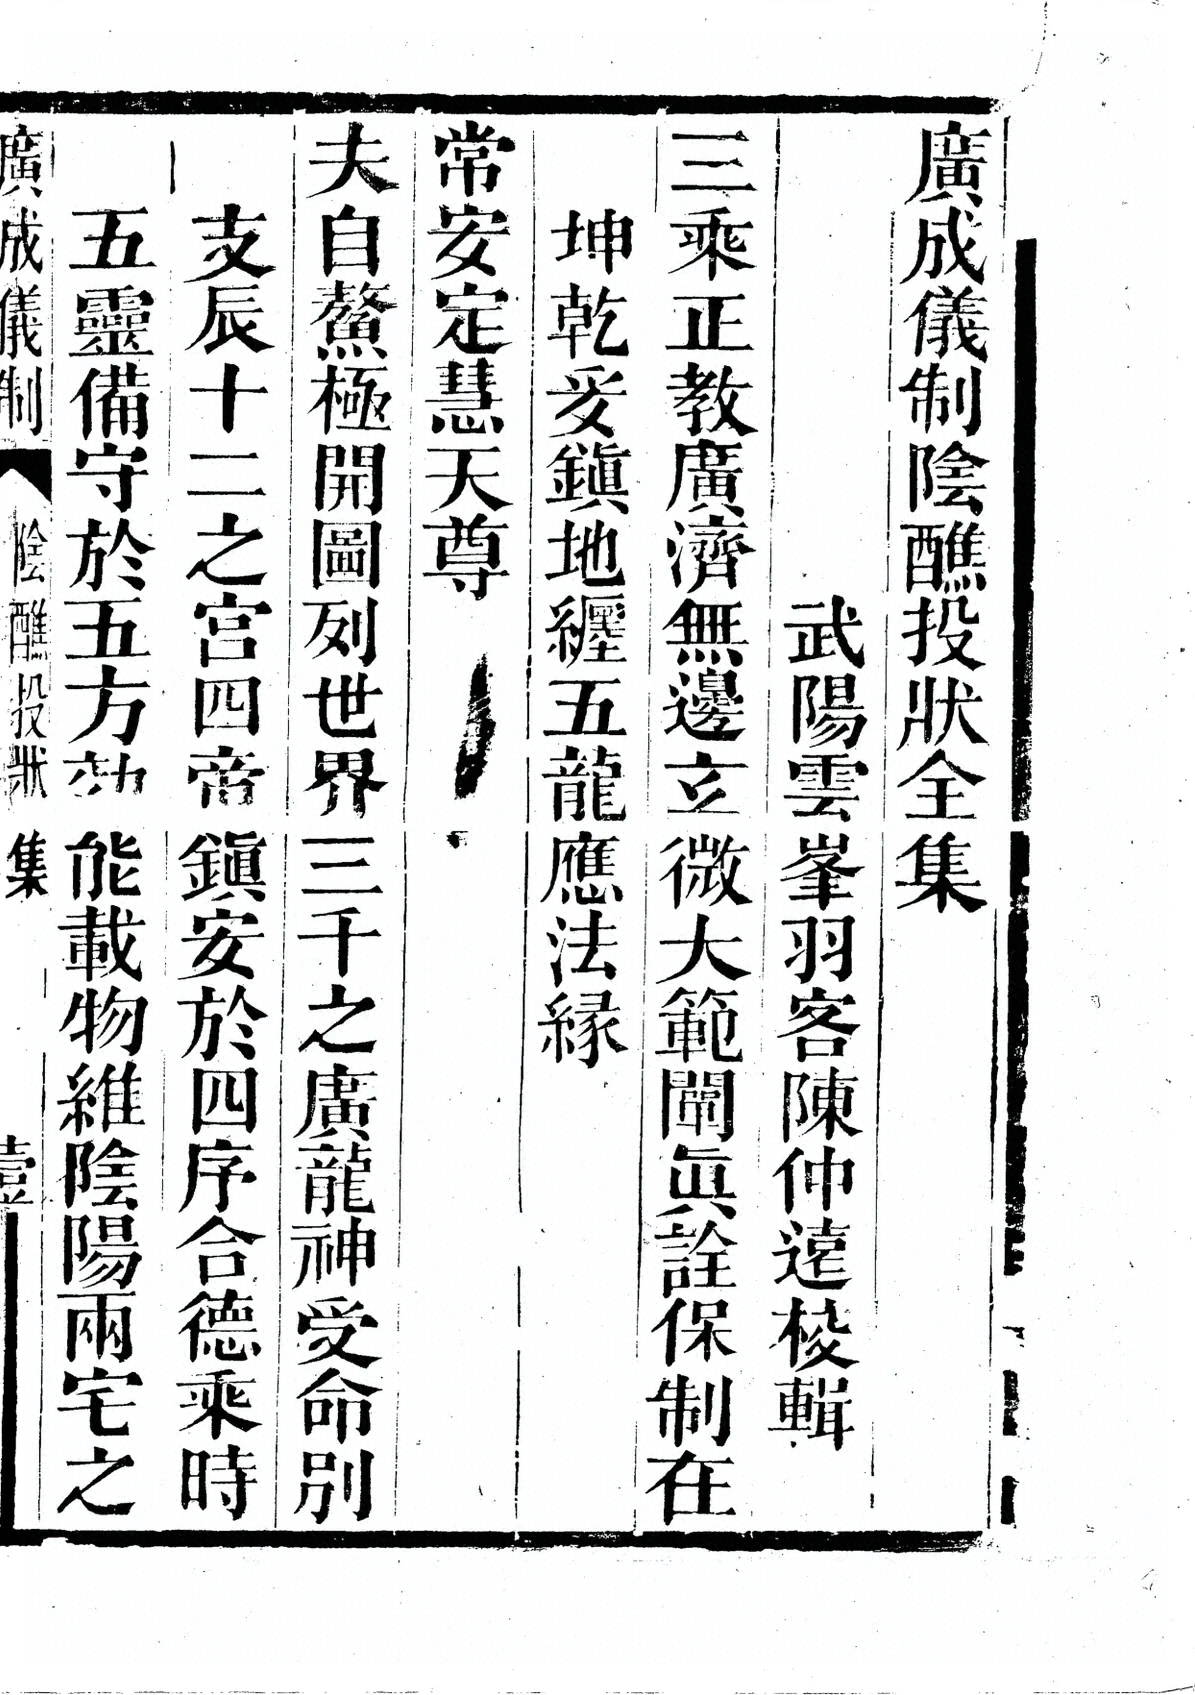 廣成儀制陰醮投狀全集
武陽雲峯羽客陳仲遠梭輯
三乘正教廣濟無邊立微大範闡眞詮保制在
坤乾妥鎮地纒五龍應法緣
常安定慧天尊
夫自鰲極開圖列世界三千之廣龍神受命別
支辰十二之宮四帝鎮安於四序合德乘時
五靈備守於五方効能載物維陰陽兩宅之
廣成儀制 陰醮投狀集 壹